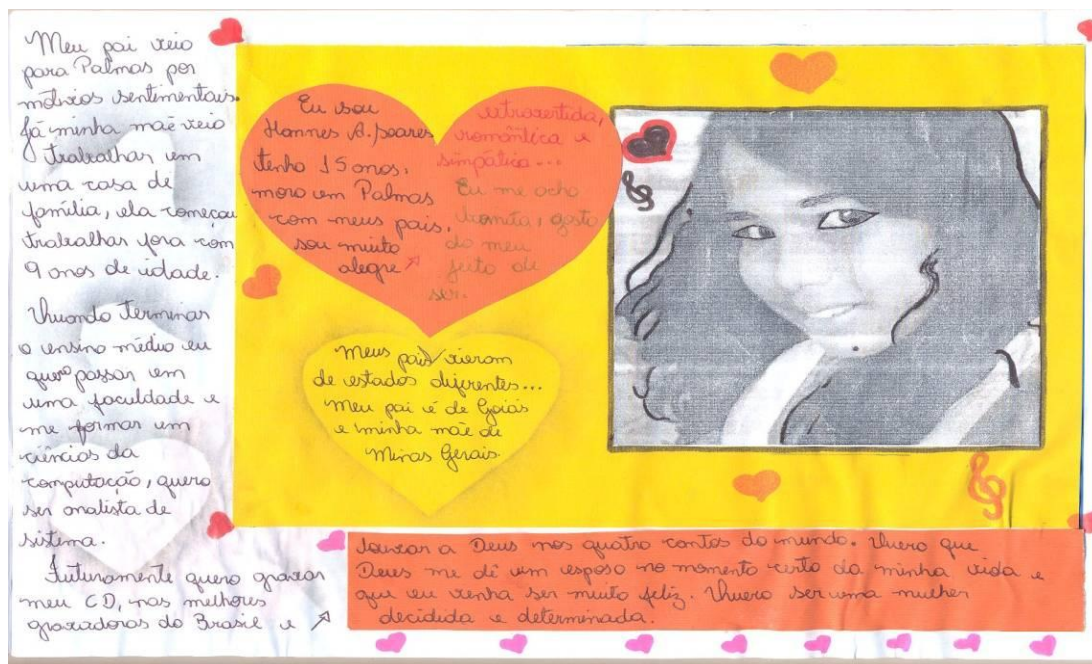 Meu pai veio
para Palmas por
motivos sentimentais.
Já minha mãe veio
trabalhar em
uma casa de
família, ela começou
trabalhar fora com
9 anos de idade.
Quando Terminar
o ensino médio eu
quero passar em
uma faculdade e
me formar em
ciências da
computação, quero
ser analista de
sistema.
Futuramente quero gravar
meu CD, nas melhores
gravadoras do Brasil e ↗
Eu sou
Hannes A. Soares
tenho 15 anos,
moro em Palmas
com meus pais,
sou muito
alegre ↗
extrovertida,
romântica e
simpática...
Eu me acho
bonita, gosto
do meu
jeito de
ser.
Meus pais vieram
de estados diferentes...
Meu pai é de Goiás
e minha mãe de
Minas Gerais
louvar a Deus nos quatro cantos do mundo. Quero que
Deus me dê um esposo no momento certo da minha vida e
que eu venha ser muito feliz. Quero ser uma mulher
decidida e determinada.